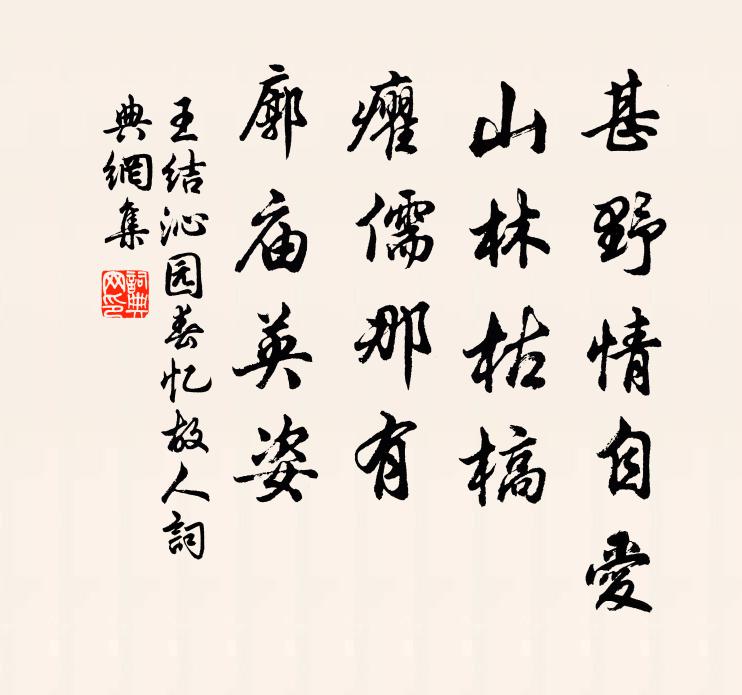 甚野情自愛
山林枯槁
癯儒那有
廓庙英姿
王结沁园春忆故人詞
典網集
詞典網印